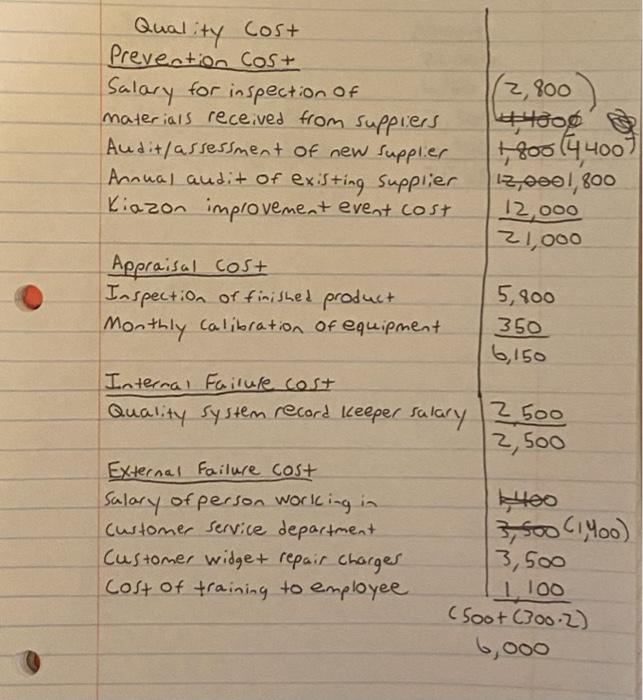 Quality Cost
Prevention Cost
Salary for inspection of (2,800)
materials received from suppiers 4,400
Audit/assessment of new supplier 1,800 (4,400)
Annual audit of existing supplier 12,000 1,800
Kiazon improvement event cost 12,000
21,000
Appraisal Cost
Inspection of finished product 5,800
Monthly calibration of equipment 350
6,150
Internal Failure cost
Quality system record keeper salary 2,500
2,500
External Failure cost
Salary of person working in 1,400
customer service department 3,500 (1,400)
Customer widget repair charges 3,500
Cost of training to employee 1,100
(500+(300·2)
6,000